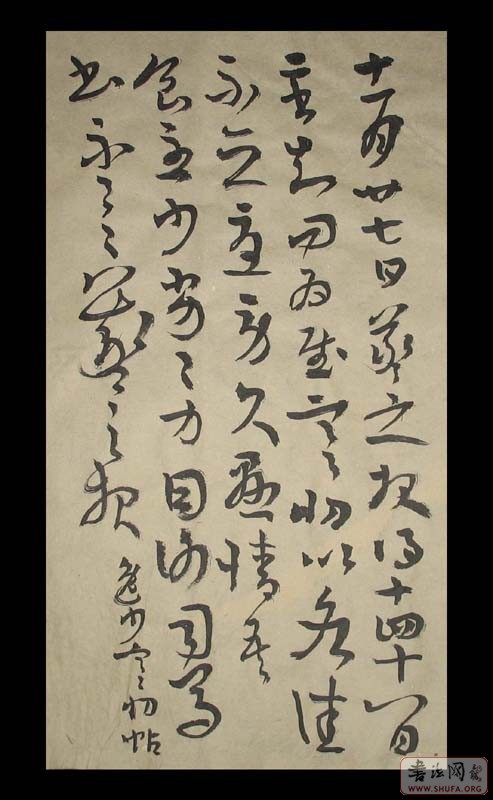 十一月廿七日羲之報得十四十八日
二書知問為慰寒切比各佳
不念憂勞久懸情吾
食至少劣劣力因謝司馬
書不一一羲之報
逸少寒切帖
書法网
WWW.SHUFA.ORG